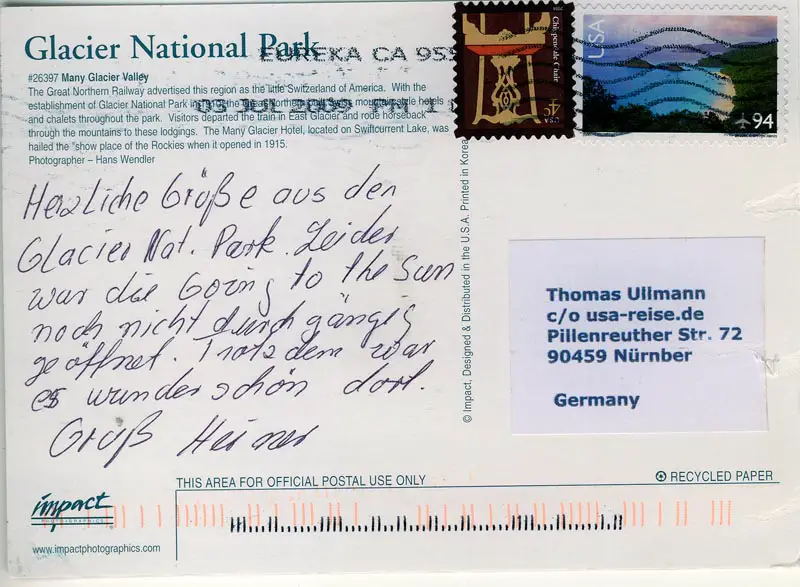 Glacier National Park
#26397 Many Glacier Valley
The Great Northern Railway advertised this region as the little Switzerland of America. With the
establishment of Glacier National Park in the Great Northern built mountain style hotels
and chalets throughout the park. Visitors departed the train in East Glacier and rode horseback
through the mountains to these lodgings. The Many Glacier Hotel, located on Swiftcurrent Lake, was
hailed the "show place of the Rockies when it opened in 1915.
Photographer – Hans Wendler
EUREKA CA 955
03 PM 1
Chippendale Chair
4c
USA
USA
94
Herzliche Grüße aus den
Glacier Nat. Park. Leider
war die Going to the Sun
noch nicht durchgängig
geöffnet. Trotzdem war
es wunderschön dort.
Gruß Heiner
© Impact, Designed & Distributed in the U.S.A. Printed in Korea
Thomas Ullmann
c/o usa-reise.de
Pillenreuther Str. 72
90459 Nürnber
Germany
THIS AREA FOR OFFICIAL POSTAL USE ONLY
RECYCLED PAPER
impact
PHOTOGRAPHICS
www.impactphotographics.com